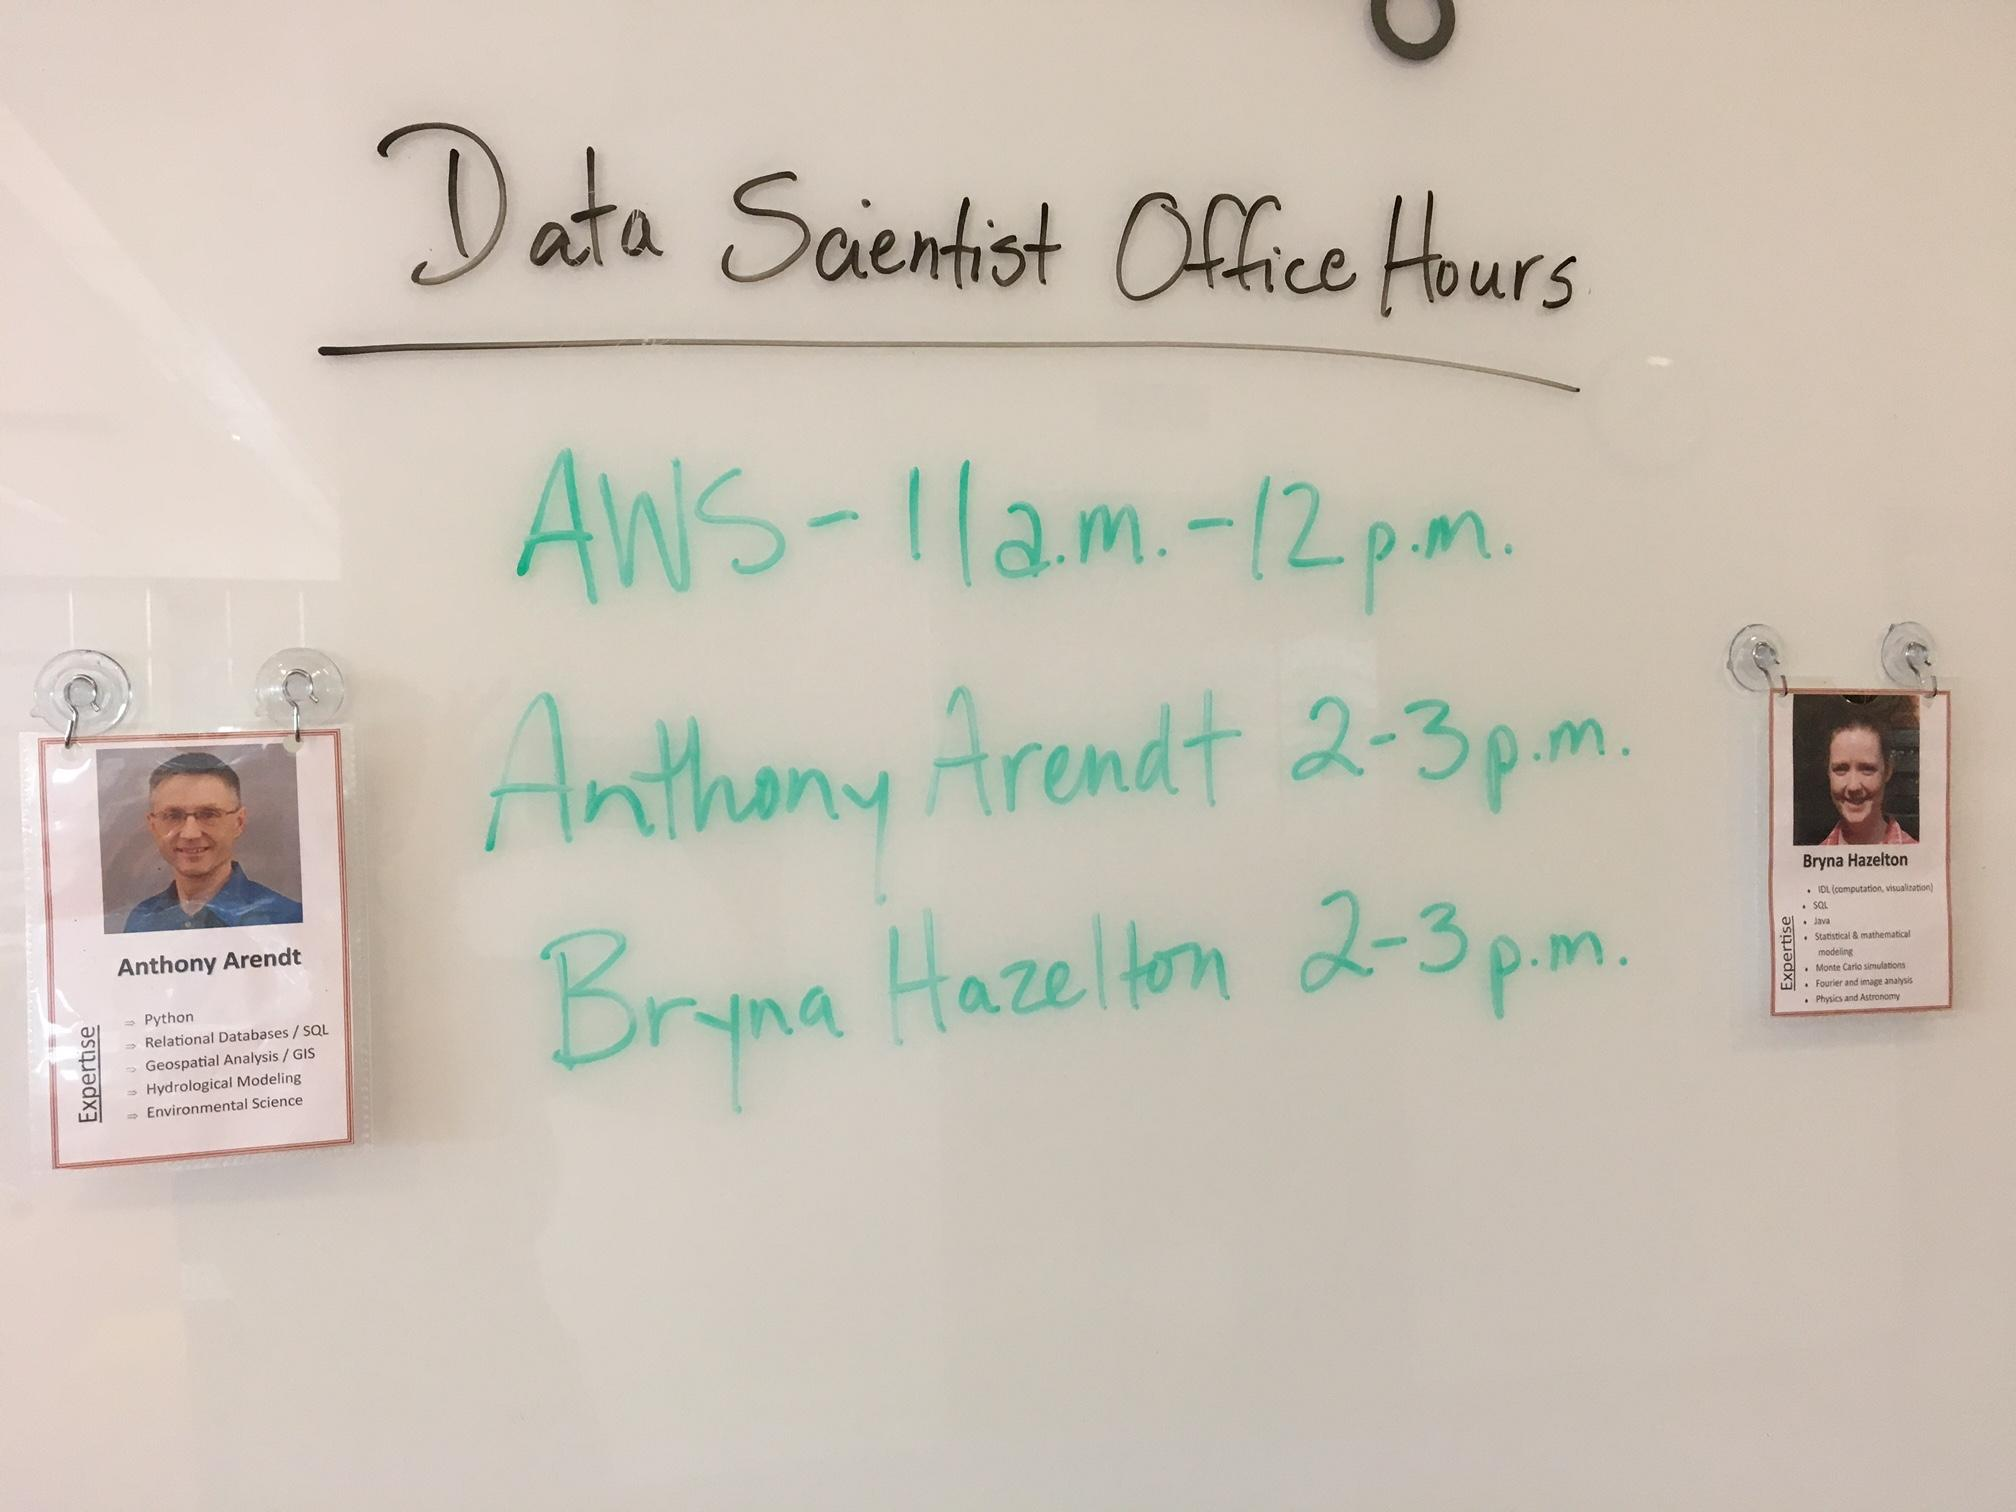 Data Scientist Office Hours
AWS - 11a.m. - 12p.m.
Anthony Arendt 2-3p.m.
Bryna Hazelton 2-3p.m.
Anthony Arendt
Expertise
⇒ Python
⇒ Relational Databases / SQL
⇒ Geospatial Analysis / GIS
⇒ Hydrological Modeling
⇒ Environmental Science
Bryna Hazelton
Expertise
• IDL (computation, visualization)
• SQL
• Java
• Statistical & mathematical
modeling
• Monte Carlo simulations
• Fourier and image analysis
• Physics and Astronomy